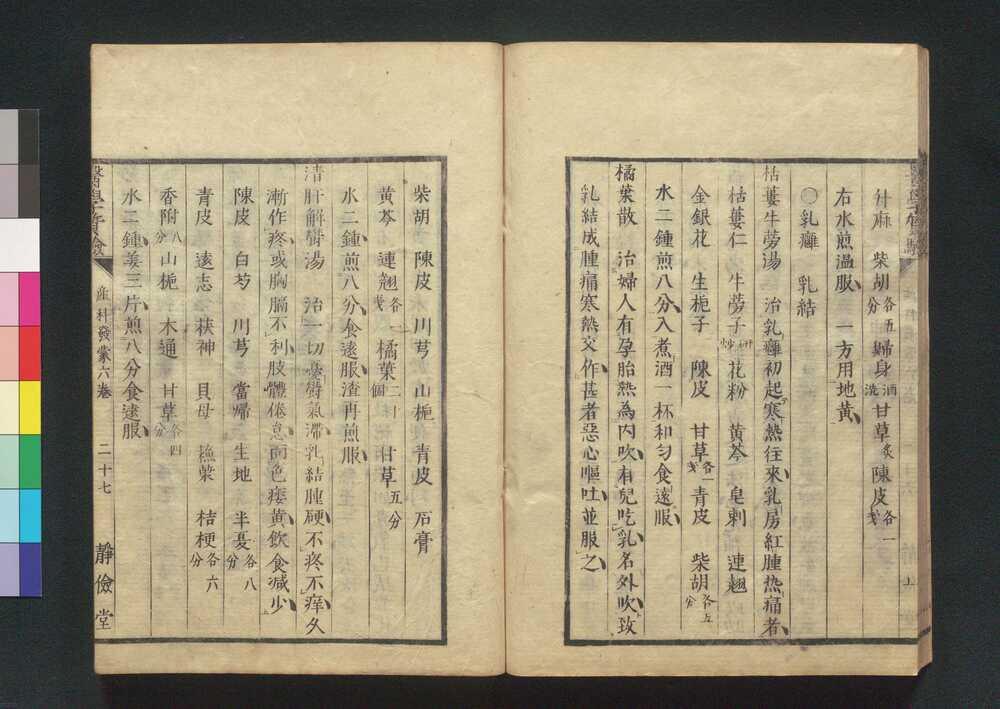 升麻 柴胡各五分 歸身酒洗 甘草炙 陳皮各一戔
右水煎温服 一方用地黄
〇乳癰 乳結
枯蔞牛蒡湯 治乳癰初起寒熱往來乳房紅腫热痛者
枯蔞仁 牛蒡子研炒 花粉 黄芩 皂刺 連翹
金銀花 生栀子 陳皮 甘草各一戔 青皮 柴胡各五分
水二鍾煎八分入煮酒一杯和匀食遠服
橘葉散 治婦人有孕胎熱為内吹有兒吃乳名外吹致
乳結成腫痛寒熱交作甚者惡心嘔吐並服之
柴胡 陳皮 川芎 山梔 青皮 石膏
黄芩 連翹各一戔 橘葉二十個 甘草五分
水二鍾煎八分食遠服渣再煎服
清肝解欝湯 治一切憂欝氣滯乳結腫硬不疼不痒久
漸作疼或胸膈不利肢體倦怠面色痿黄飲食减少
陳皮 白芍 川芎 當歸 生地 半夏各八分
青皮 遠志 茯神 貝母 蘓葉 桔梗各六分
香附八分 山梔 木通 甘草各四分
水二鍾姜三片煎八分食遠服
産科發蒙六卷 二十七 靜儉堂